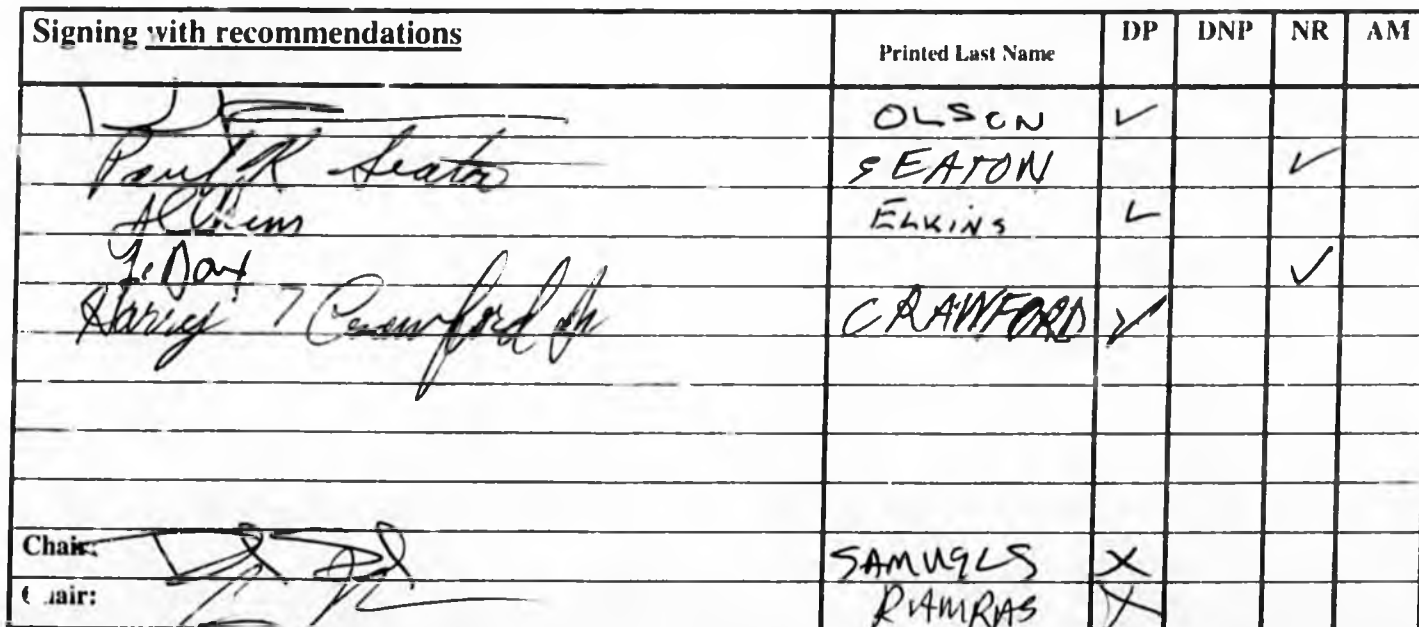 Signing with recommendations Printed Last Name DP DNP NR AM
OLSON ✓
Paul K Seaton SEATON ✓
ELKINS ✓
✓
Harry T Crawford Jr CRAWFORD ✓
Chair: SAMUELS X
Chair: RAMRAS X